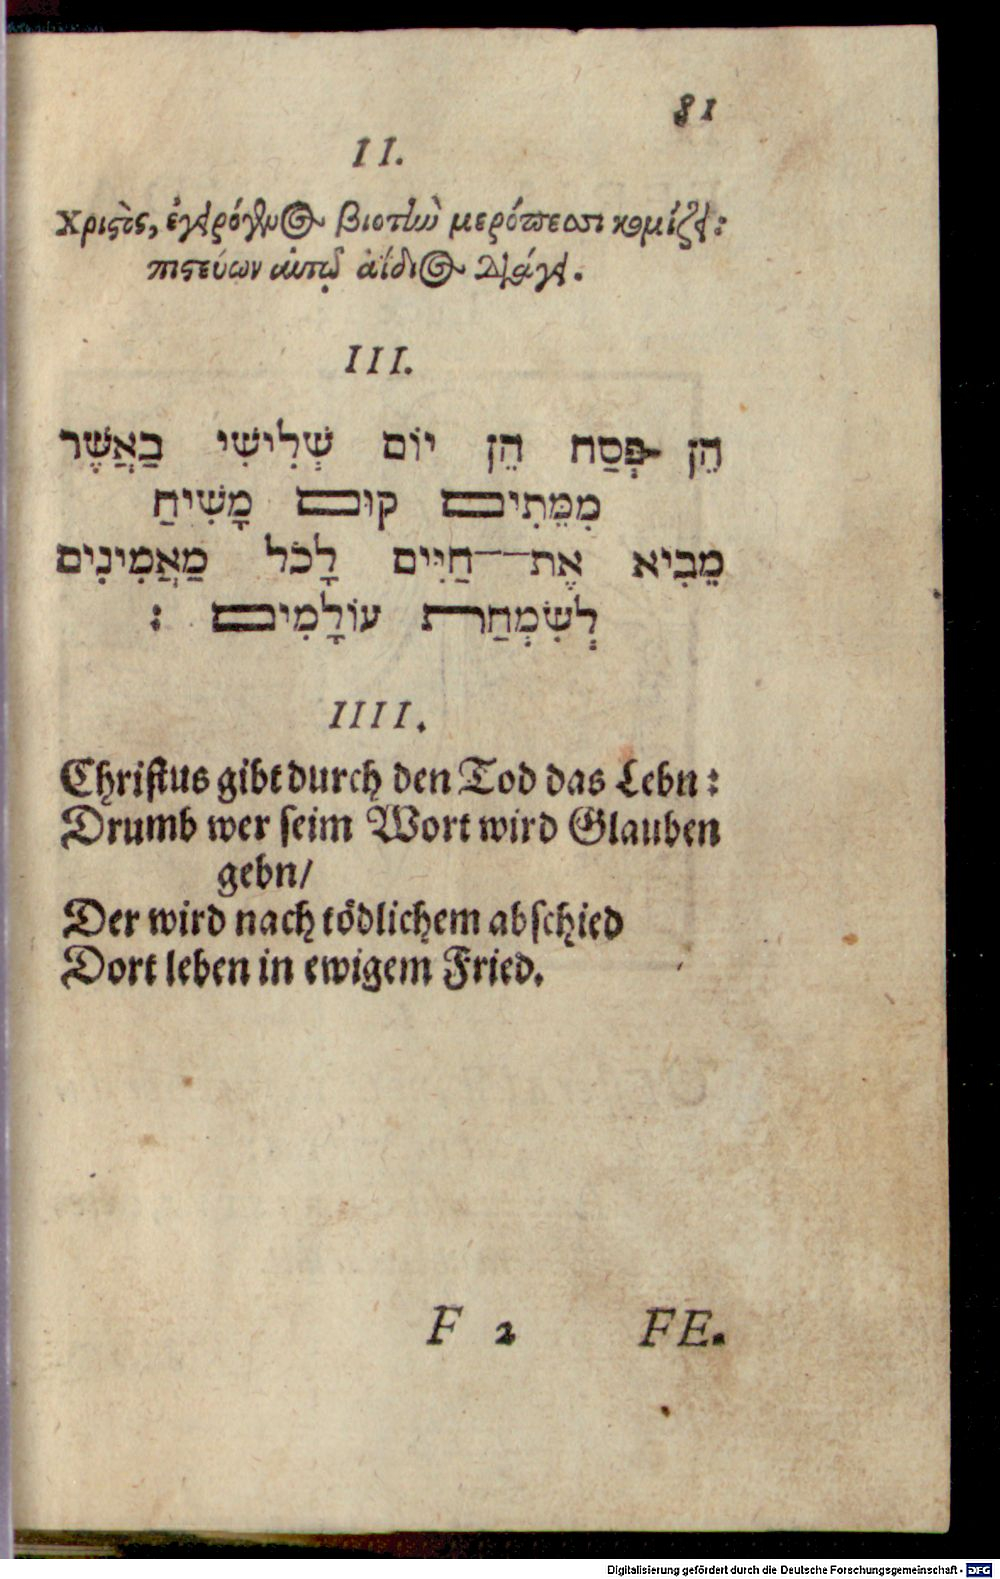 81
II.
Χριστὸς, ἐγειρόμενος βιοτὴν μερόπεσσι κομίζει:
πιστεύων αὐτῷ ἀΐδιος διάγει.
III.
הֵן פְּסַח הֵן יוֹם שְׁלִישִׁי בַּאֲשֶׁר
מִמֵּתִים קוּם מָשִׁיחַ
מֵבִיא אֶת־חַיִּים לָכֹל מַאֲמִינִים
לְשִׂמְחַת עוֹלָמִים :
IIII.
Christus gibt durch den Tod das Lebn:
Drumb wer seim Wort wird Glauben
gebn/
Der wird nach tödlichem abschied
Dort leben in ewigem Fried.
F 2 FE.
Digitalisierung gefördert durch die Deutsche Forschungsgemeinschaft - DFG